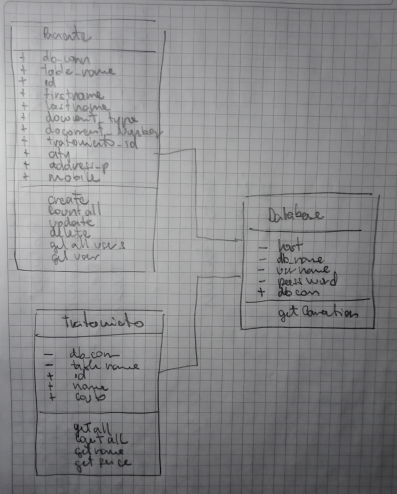 Paciente
+ db_conn
+ table_name
+ id
+ firstname
+ lastname
+ document_type
+ document_number
+ tratamiento_id
+ city
+ address_p
+ mobile
create
count all
update
delete
get all users
get user
Database
- host
- db_name
- username
- password
+ db conn
get Conection
Tratamiento
- db_conn
- table name
+ id
+ name
+ costo
get all
count all
get name
get price